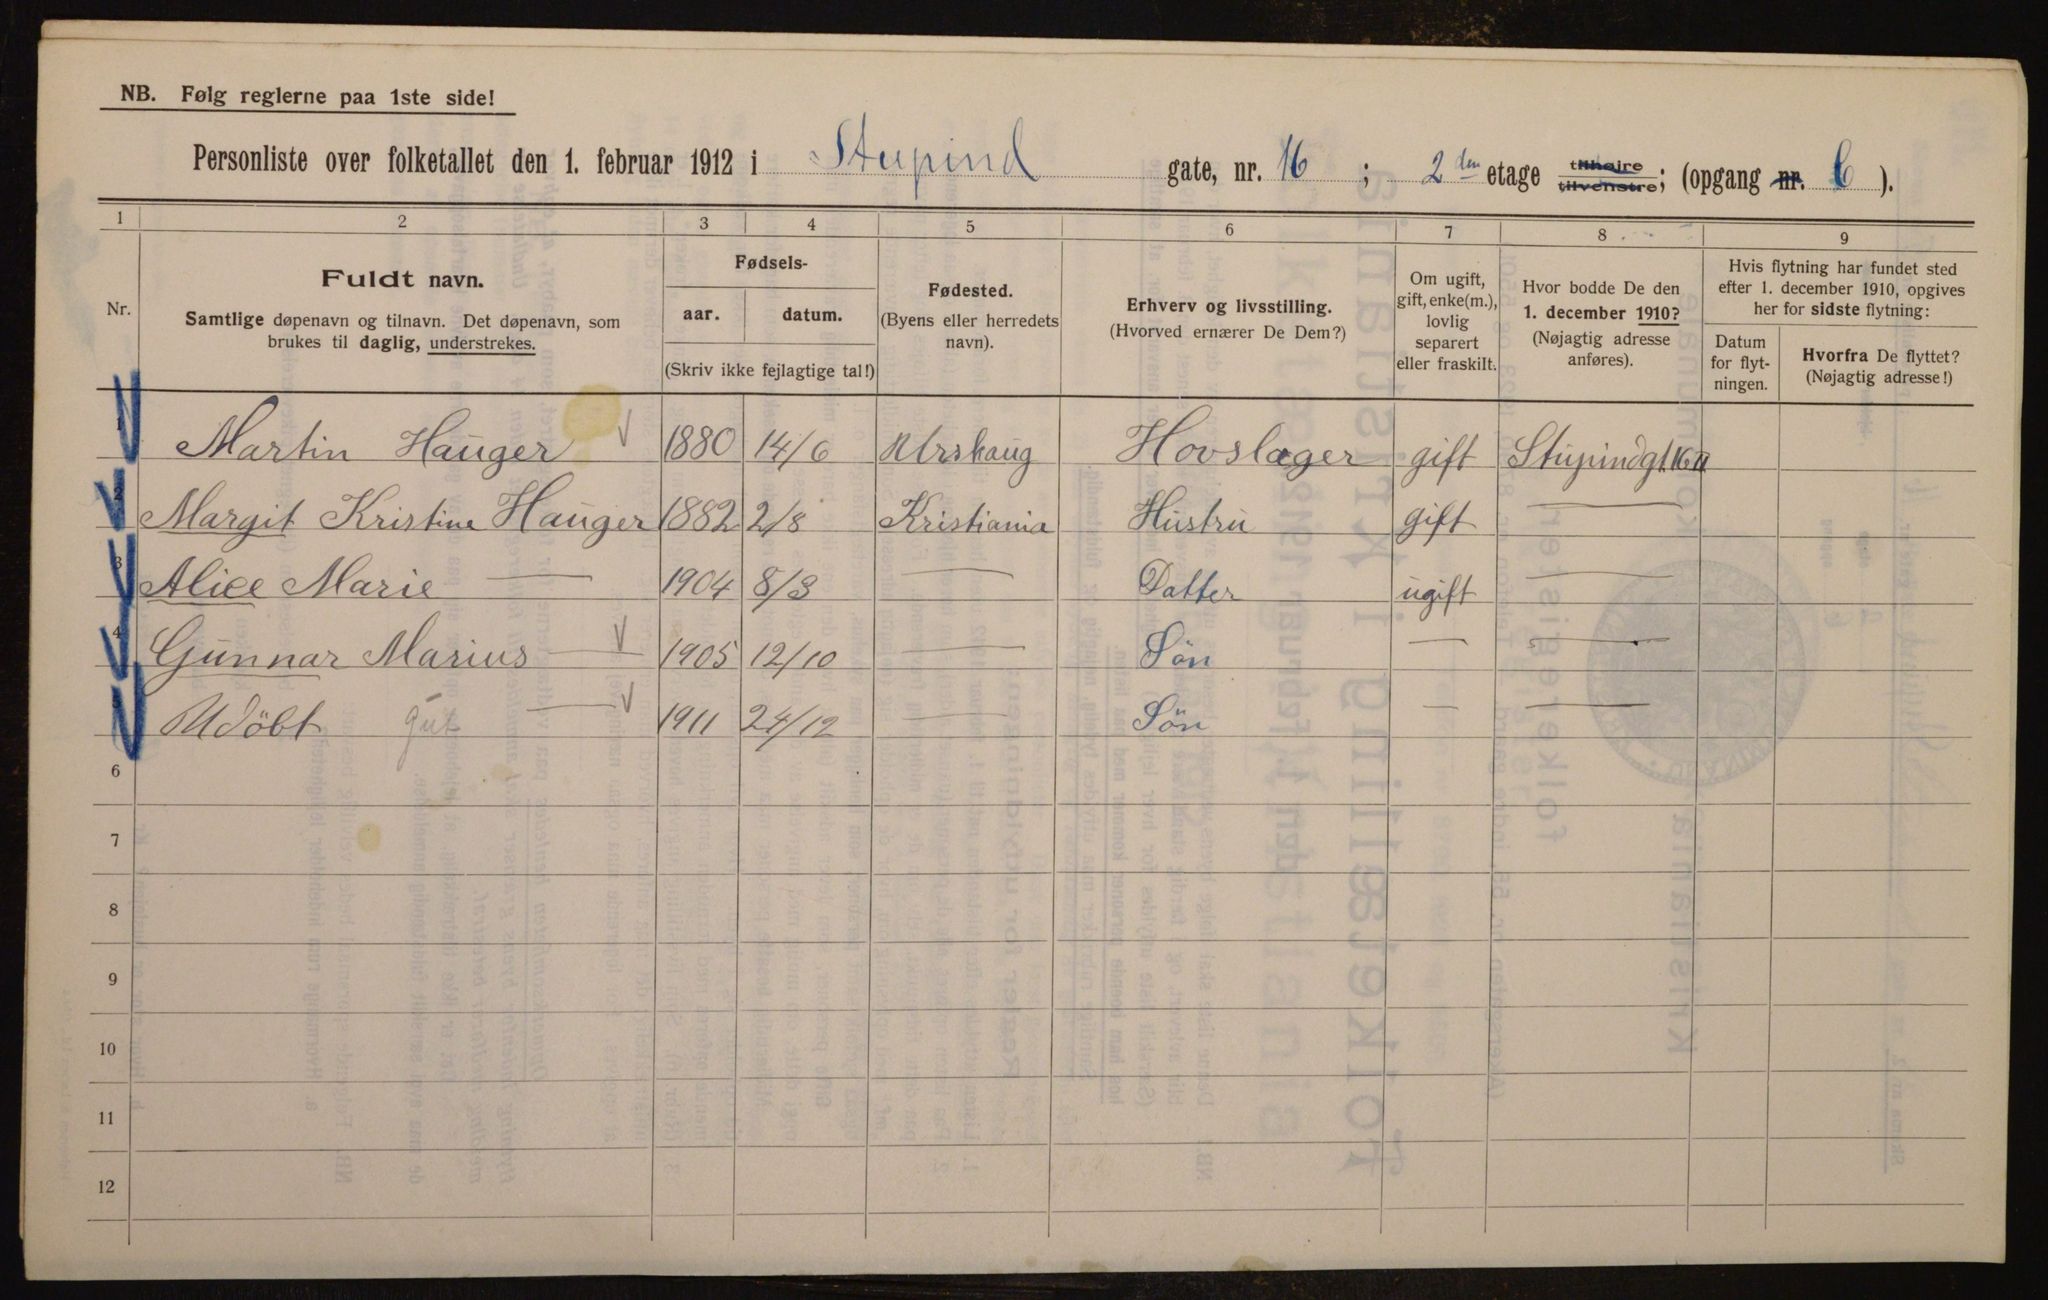 NB. Følg reglerne paa 1ste side!
Personliste over folketallet den 1. februar 1912 i Stupind gate, nr. 16 ; 2den etage tilhøire tilvenstre; (opgang nr. C ).
1 2 3 4 5 6 7 8 9
Nr.
Fuldt navn.
Samtlige døpenavn og tilnavn. Det døpenavn, som
brukes til daglig, understrekes.
Fødsels-
aar. datum.
(Skriv ikke fejlagtige tal!)
Fødested.
(Byens eller herredets
navn).
Erhverv og livsstilling.
(Hvorved ernærer De Dem?)
Om ugift,
gift, enke(m.),
lovlig
separert
eller fraskilt.
Hvor bodde De den
1. december 1910?
(Nøjagtig adresse
anføres).
Hvis flytning har fundet sted
efter 1. december 1910, opgives
her for sidste flytning:
Datum
for flyt-
ningen.
Hvorfra De flyttet?
(Nøjagtig adresse!)
1 Martin Hauger 1880 14/6 Urskaug Hovslager gift Stupindgt. 16 II
2 Margit Kristine Hauger 1882 2/8 Kristiania Hustru gift —
3 Alice Marie — 1904 8/3 — Datter ugift —
4 Gunnar Marius — 1905 12/10 — Søn — —
5 Udöbt gut — 1911 24/12 — Søn — —
6
7
8
9
10
11
12